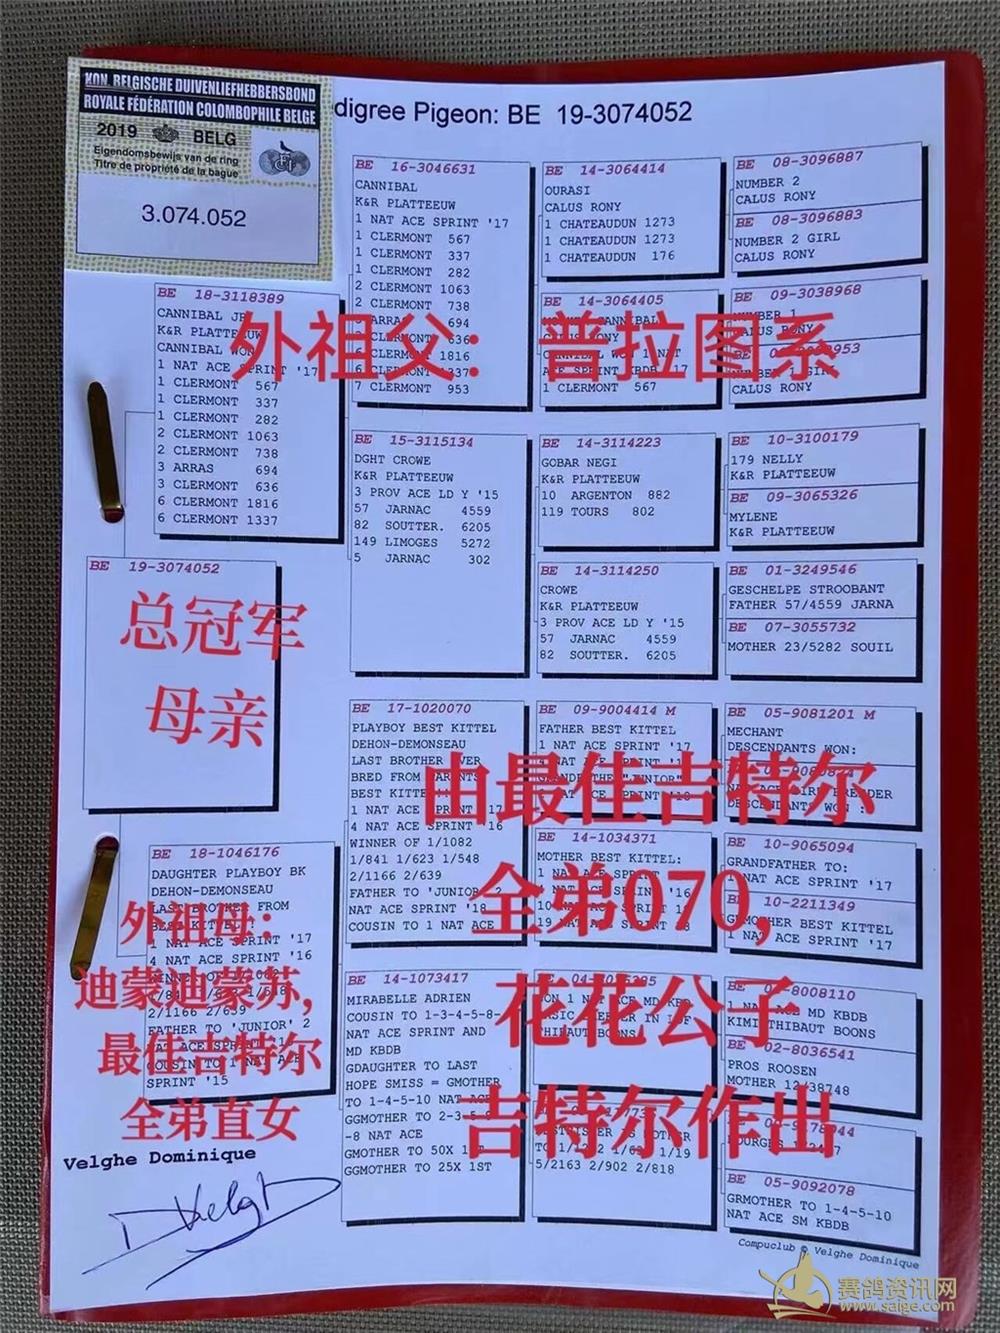 KON. BELGISCHE DUIVENLIEFHEBBERSBOND
ROYALE FÉDÉRATION COLOMBOPHILE BELGE
2019 BELG
Eigendomsbewijs van de ring
Titre de propriété de la bague
3.074.052
digree Pigeon: BE 19-3074052
BE 18-3118389
CANNIBAL JE
K&R PLATTEEUW
CANNIBAL WON
1 NAT ACE SPRINT '17
1 CLERMONT 567
1 CLERMONT 337
1 CLERMONT 282
2 CLERMONT 1063
2 CLERMONT 738
3 ARRAS 694
3 CLERMONT 636
6 CLERMONT 1816
6 CLERMONT 1337
BE 19-3074052
总冠军
母亲
BE 18-1046176
DAUGHTER PLAYBOY BK
DEHON-DEMONSEAU
LAST BROTHER FROM
BEST KITTEL !
1 NAT ACE SPRINT '17
4 NAT ACE SPRINT '16
2/1166 2/639
FATHER TO 'JUNIOR' 2
COUSIN TO 1 NAT ACE
SPRINT '15
外祖母：
迪蒙迪蒙苏，
最佳吉特尔
全弟直女
Velghe Dominique
BE 16-3046631
CANNIBAL
K&R PLATTEEUW
1 NAT ACE SPRINT '17
1 CLERMONT 567
1 CLERMONT 337
1 CLERMONT 282
2 CLERMONT 1063
2 CLERMONT 738
3 ARRAS 694
CLERMONT 636
6 CLERMONT 1816
6 CLERMONT 1337
7 CLERMONT 953
外祖父：普拉图系
BE 15-3115134
DGHT CROWE
K&R PLATTEEUW
3 PROV ACE LD Y '15
57 JARNAC 4559
82 SOUTTER. 6205
149 LIMOGES 5272
5 JARNAC 302
BE 17-1020070
PLAYBOY BEST KITTEL
DEHON-DEMONSEAU
LAST BROTHER EVER
BRED FROM PARENTS
BEST KITTEL!!
1 NAT ACE SPRINT '17
4 NAT ACE SPRINT '16
WINNER OF 1/1082
1/841 1/623 1/548
2/1166 2/639
FATHER TO 'JUNIOR' 2
NAT ACE SPRINT '18
COUSIN TO 1 NAT ACE
BE 14-1073417
MIRABELLE ADRIEN
COUSIN TO 1-3-4-5-8-
NAT ACE SPRINT AND
MD KBDB
GDAUGHTER TO LAST
HOPE SMISS = GMOTHER
TO 1-4-5-10 NAT ACE
GGMOTHER TO 2-3-5-8
-8 NAT ACE
GMOTHER TO 50X 1ST
GGMOTHER TO 25X 1ST
BE 14-3064414
OURASI
CALUS RONY
1 CHATEAUDUN 1273
1 CHATEAUDUN 1273
1 CHATEAUDUN 176
BE 14-3064405
CANNIBAL
CANNIBAL WON 1 NAT
ACE SPRINT KBDB '17
1 CLERMONT 567
BE 14-3114223
GOBAR NEGI
K&R PLATTEEUW
10 ARGENTON 882
119 TOURS 802
BE 14-3114250
CROWE
K&R PLATTEEUW
3 PROV ACE LD Y '15
57 JARNAC 4559
82 SOUTTER. 6205
BE 09-9004414 M
FATHER BEST KITTEL
1 NAT ACE SPRINT '17
由最佳吉特尔
BE 14-1034371
MOTHER BEST KITTEL:
1 NAT ACE SPRINT
全弟070，
花花公子
吉特尔作出
5/2163 2/902 2/818
BE 08-3096887
NUMBER 2
CALUS RONY
BE 08-3096883
NUMBER 2 GIRL
CALUS RONY
BE 09-3038968
NUMBER 1
CALUS RONY
CALUS RONY
BE 10-3100179
179 NELLY
K&R PLATTEEUW
BE 09-3065326
MYLENE
K&R PLATTEEUW
BE 01-3249546
GESCHELPE STROOBANT
FATHER 57/4559 JARNA
BE 07-3055732
MOTHER 23/5282 SOUIL
BE 05-9081201 M
MECHANT
DESCENDANTS WON:
DESCENDANTS WON :
BE 10-9065094
GRANDFATHER TO:
1 NAT ACE SPRINT '17
BE 10-2211349
GRMOTHER BEST KITTEL
1 NAT ACE SPRINT '17
8008110
1 NAT ACE MD KBDB
THIBAUT BOONS
BE 02-8036541
PROS ROOSEN
MOTHER 12/38748
BE 05-9092078
GRMOTHER TO 1-4-5-10
NAT ACE SM KBDB
Compuclub © Velghe Dominique
赛鸽资讯网
www.saige.com